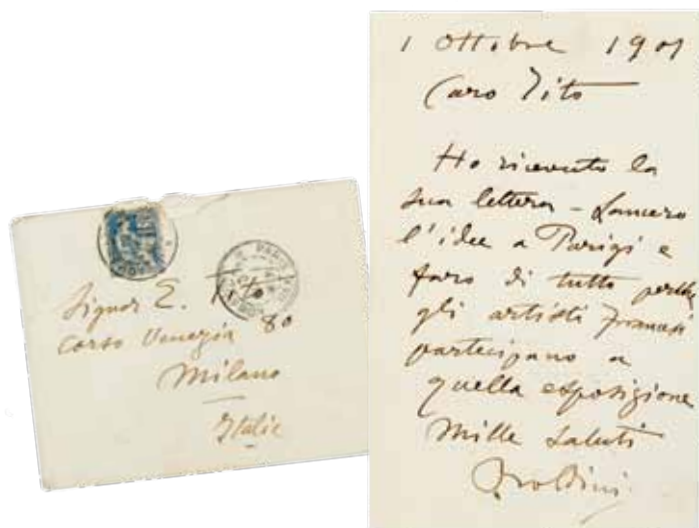 Signor E. Tito
Corso Venezia 80
Milano
Italie
1 Ottobre 1901
Caro Tito
Ho ricevuto la
sua lettera - Lancero
l'idea a Parigi e
faro di tutto perche
gli artisti francesi
partecipano a
quella esposizione
Mille saluti
Boldini